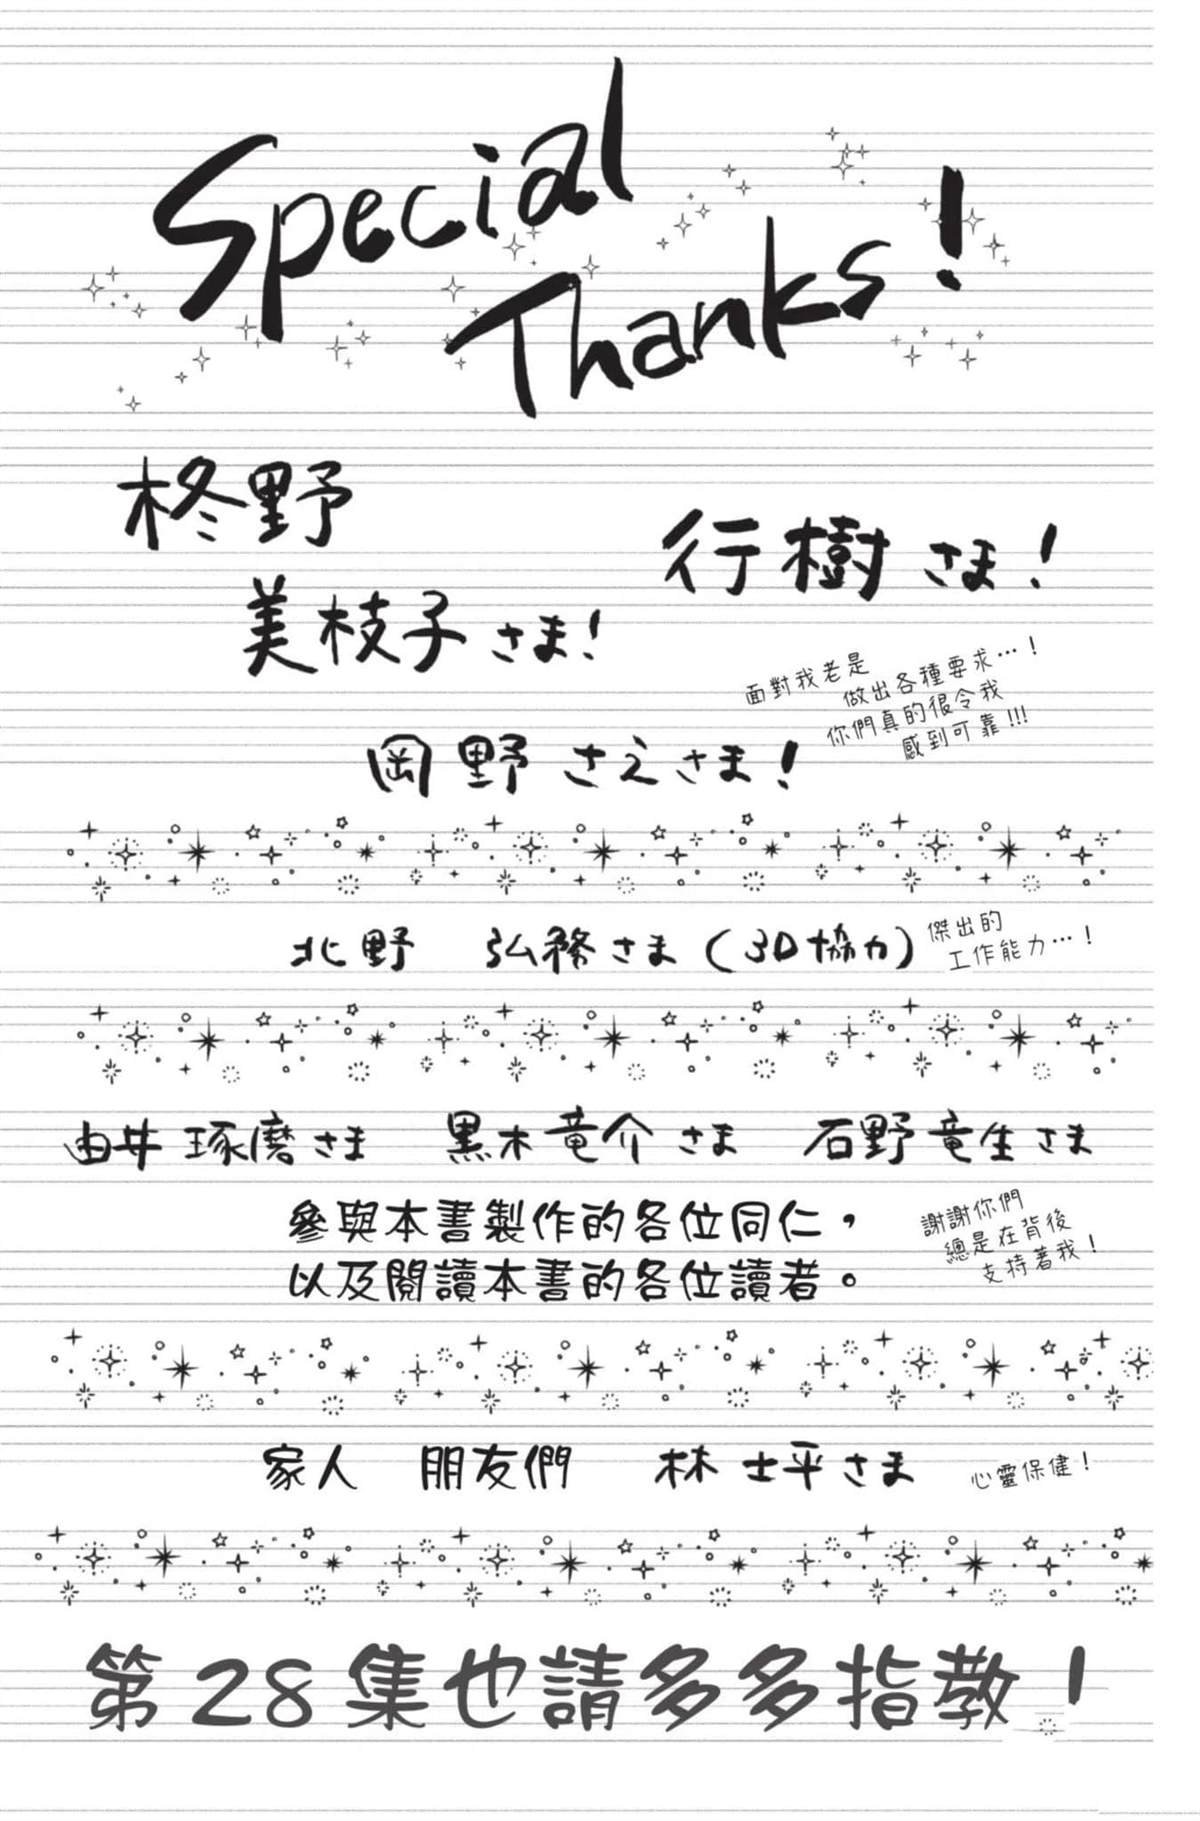 Special
Thanks!
柊野
美枝子さま!
行樹さま!
岡野さえさま!
面對我老是
做出各種要求…!
你們真的很令我
感到可靠!!!
北野 弘務さま(3D協力)
傑出的
工作能力…!
由井琢磨さま 黒木竜介さま 石野竜生さま
參與本書製作的各位同仁，
以及閱讀本書的各位讀者。
謝謝你們
總是在背後
支持著我!
家人 朋友們 林士平さま
心靈保健!
第28集也請多多指教!